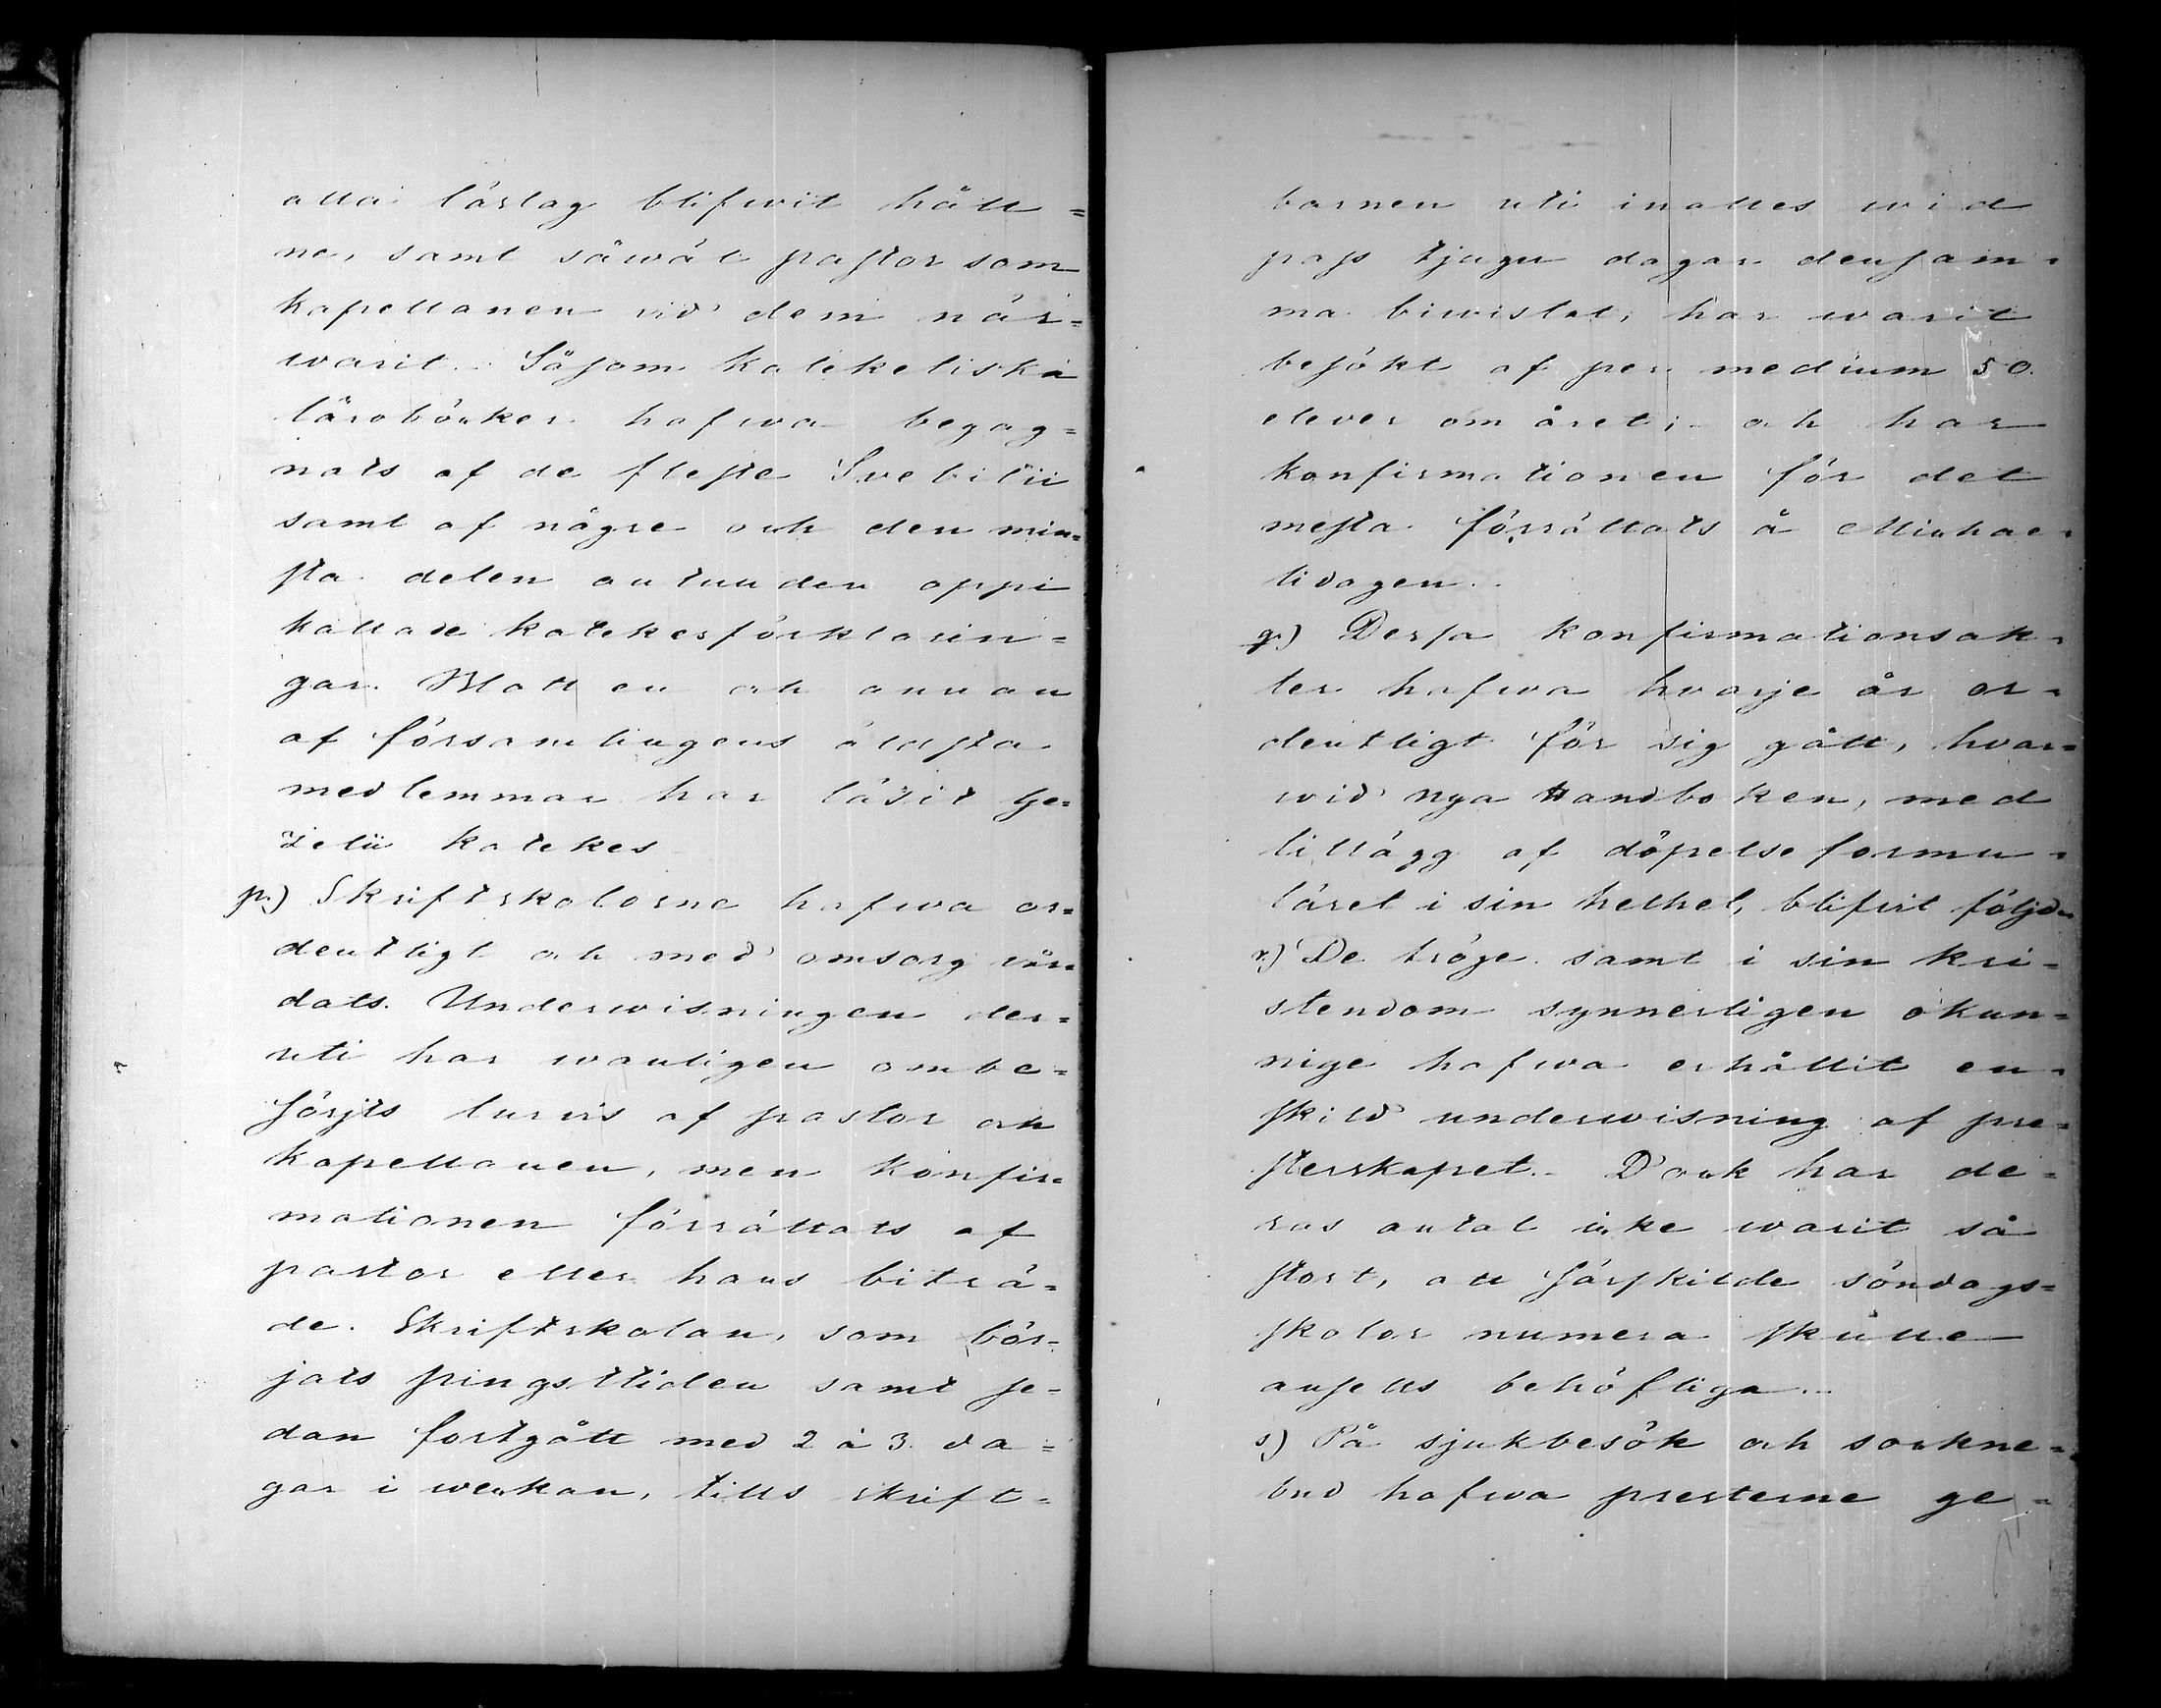 alla läslag blifwit håll=
ne, samt såwäl pastor som
kapellanen vid dem när=
warit. Såsom kateketiska
läroböcker hafwa begag=
nats af de fleste Svebilii
samt af någre och den min=
sta delen antunden oppi
kallare katekesförklarin=
gar. Blott en och annan
af församlingens äldsta
medlemmar har läsit Ge=
zelii katekes
p.) Skriftskolorne hafwa or=
dentligt och med omsorg vår=
dats. Underwisningen der=
uti har wanligen ombe=
sörjts turvis af pastor och
kapellanen, men konfir=
mationen förrättats af
pastor eller hans biträ=
de. Skriftskolan, som bör=
jats pingsttiden samt se=
dan fortgått med 2 à 3 da=
gar i weckan, tills skrift=
barnen uti inalles wid
pass tjugu dagar densam=
ma biwistat, har warit
besökt af per medium 50
elever om året; och har
konfirmationen för det
mesta förrättats å Michae=
lidagen.
q.) Dessa konfirmationsak=
ter hafwa hvarje år or=
dentligt för sig gått, hvar=
wid nya Handboken, med
tillägg af döpelseformu=
läret i sin helhet, blifvit följd.
r.) De tröge samt i sin kri=
stendom synnerligen okun=
nige hafwa erhållit en=
skild underwisning af pre=
sterskapet. Dock har de=
ras antal icke warit så
stort, att särskilde söndags=
skolor numera skulle
ansetts behöfliga.
s) På sjukbesök och sockne=
bud hafwa presterne ge=